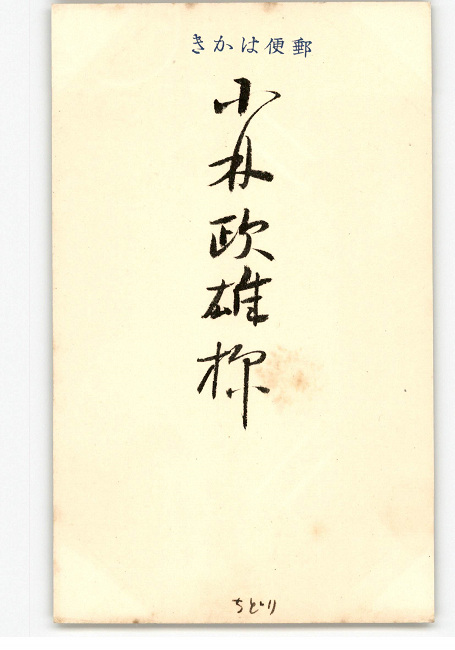 郵便はかき
小林政雄様
ちどり